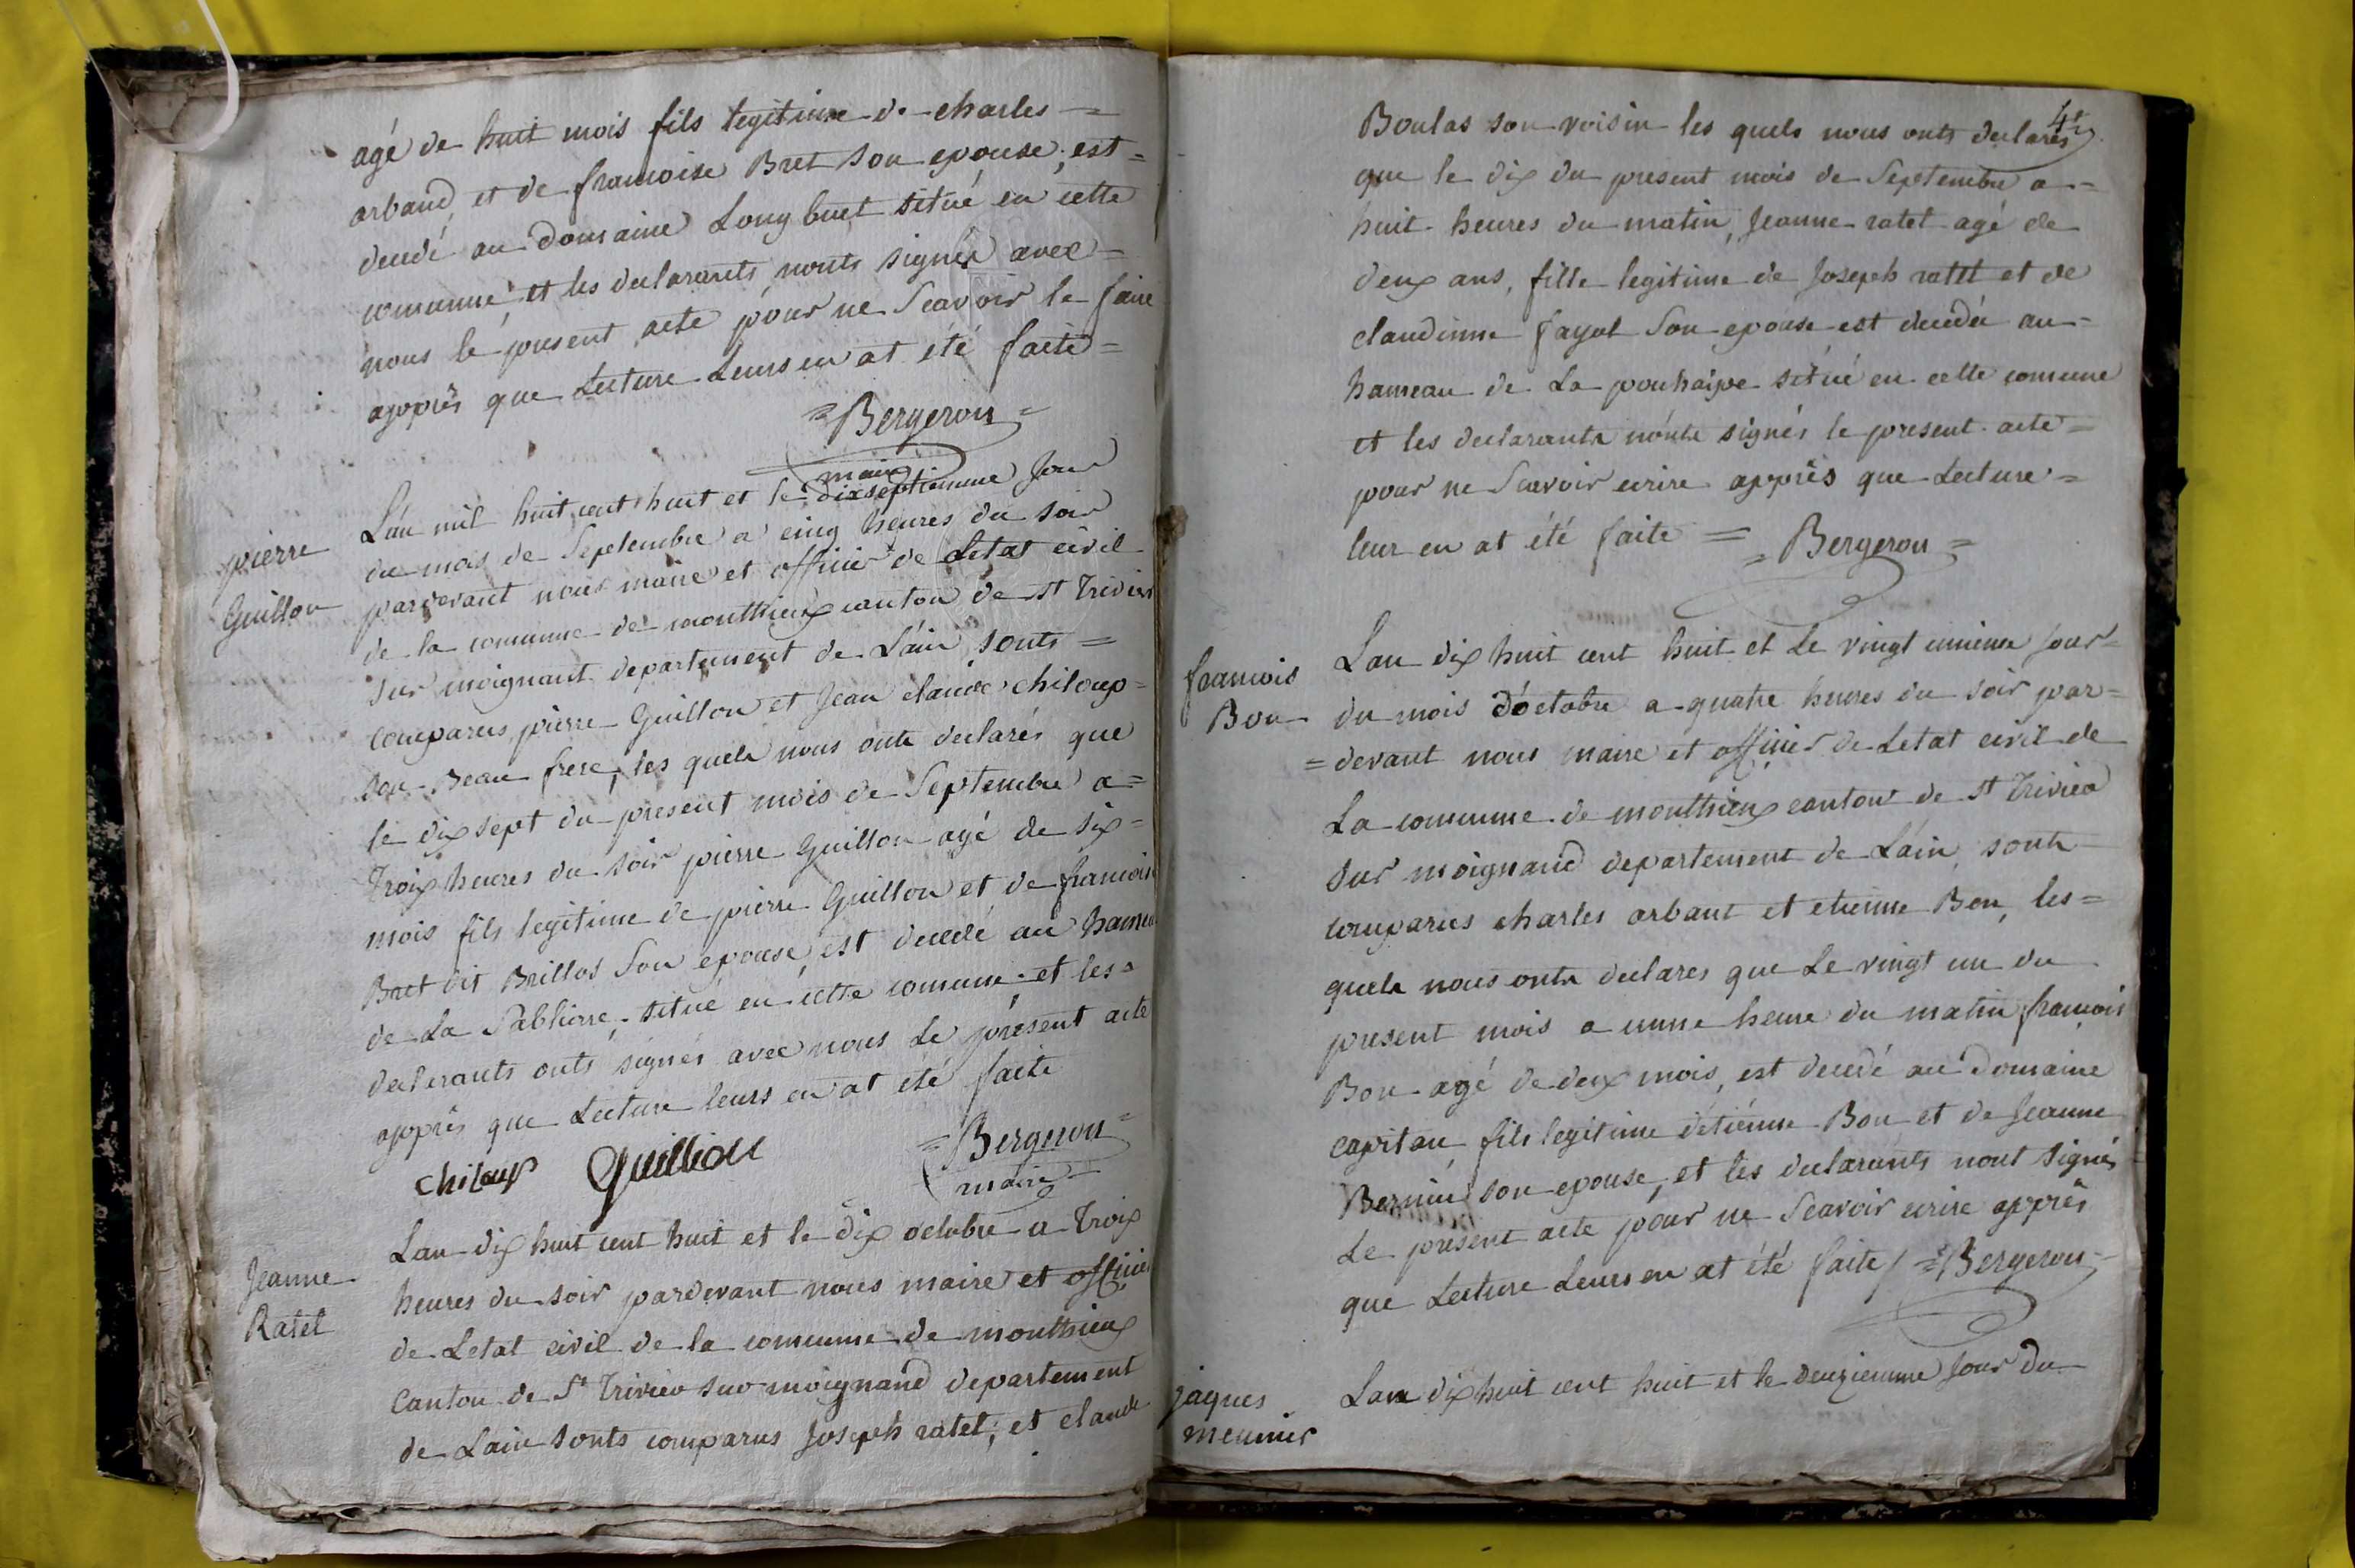 agé de huit mois fils legitime de charles =
arband, et de francoise Bret son epouse, est =
decedé au Domaine Longbuet situé en cette
comunne, et les declarants nonts signés avec =
nous le present acte pour ne Scavoir le faire
apprés que Lecture Leurs en at été faite =
= Bergeron =
maire
pierre
Guillon
L'an mil huit cent huit et le dixseptiemme Jour
du mois de Septembre a cinq heures du soir
pardevant nous maire et officier de Letat civil
de la comunne de monthieux canton de St Trivier
sur moignant departement de L'ain, sonts =
comparus pierre Guillon et Jean claude chiloup =
son Beau frere, les quels nous onts declarés que
le dix sept du present mois de Septembre a =
Troix heures du soir pierre Guillon agé de six =
mois fils legitime de pierre Guillon et de francoise
Bret dit Brillos Son epouse, est decedé au hameau
de La Sabliere, situé en cette comune, et les =
declarants onts signés avec nous Le présent acte
apprés que Lecture leurs en at été faite
chiloup Guillion = Bergeron =
maire
Jeanne
Ratel
Lan dix huit cent huit et le dix octobre a Troix
heures du soir pardevant nous maire et officier
de Letat civil de la comunne de monthieux
Canton de St Trivier sur moignand departement
de Lain sonts comparus Joseph ratet, et claude
4
Boulas son voisin les quels nous onts declarés
que le dix du present mois de Septembre a =
huit heures du matin, Jeanne ratet agé de
deux ans, fille legitime de Joseph ratet et de
claudinne fayol Son epouse est decedée au =
hameau de La pouhaipe situé en cette comune
et les declarants nonts signés le present acte =
pour ne Scavoir ecrire apprés que Lecture =
leur en at été faite = = Bergeron =
francois
Bon
Lan dix huit cent huit et le vingt unieme Jour =
du mois d'octobre a quatre heures du soir par =
= devant nous maire et officier de Letat civil de
La comunne de monthieux canton de St Trivier
sur moignand departement de L'ain, sonts
comparus charles arbant et etienne Bon, les =
quels nous onts declares que Le vingt un du
present mois a unne heure du matin francois
Bon agé de deux mois, est decedé au Domaine
capitan, fils legitime d'étienne Bon et de Jeanne
Bernin son epouse, et les declarants nont signés
Le present acte pour ne Scavoir ecrire apprés
que Lecture Leurs en at été faite / = Bergeron =
jaques
meunier
Lan dix huit cent huit et le deuxiemme Jour du